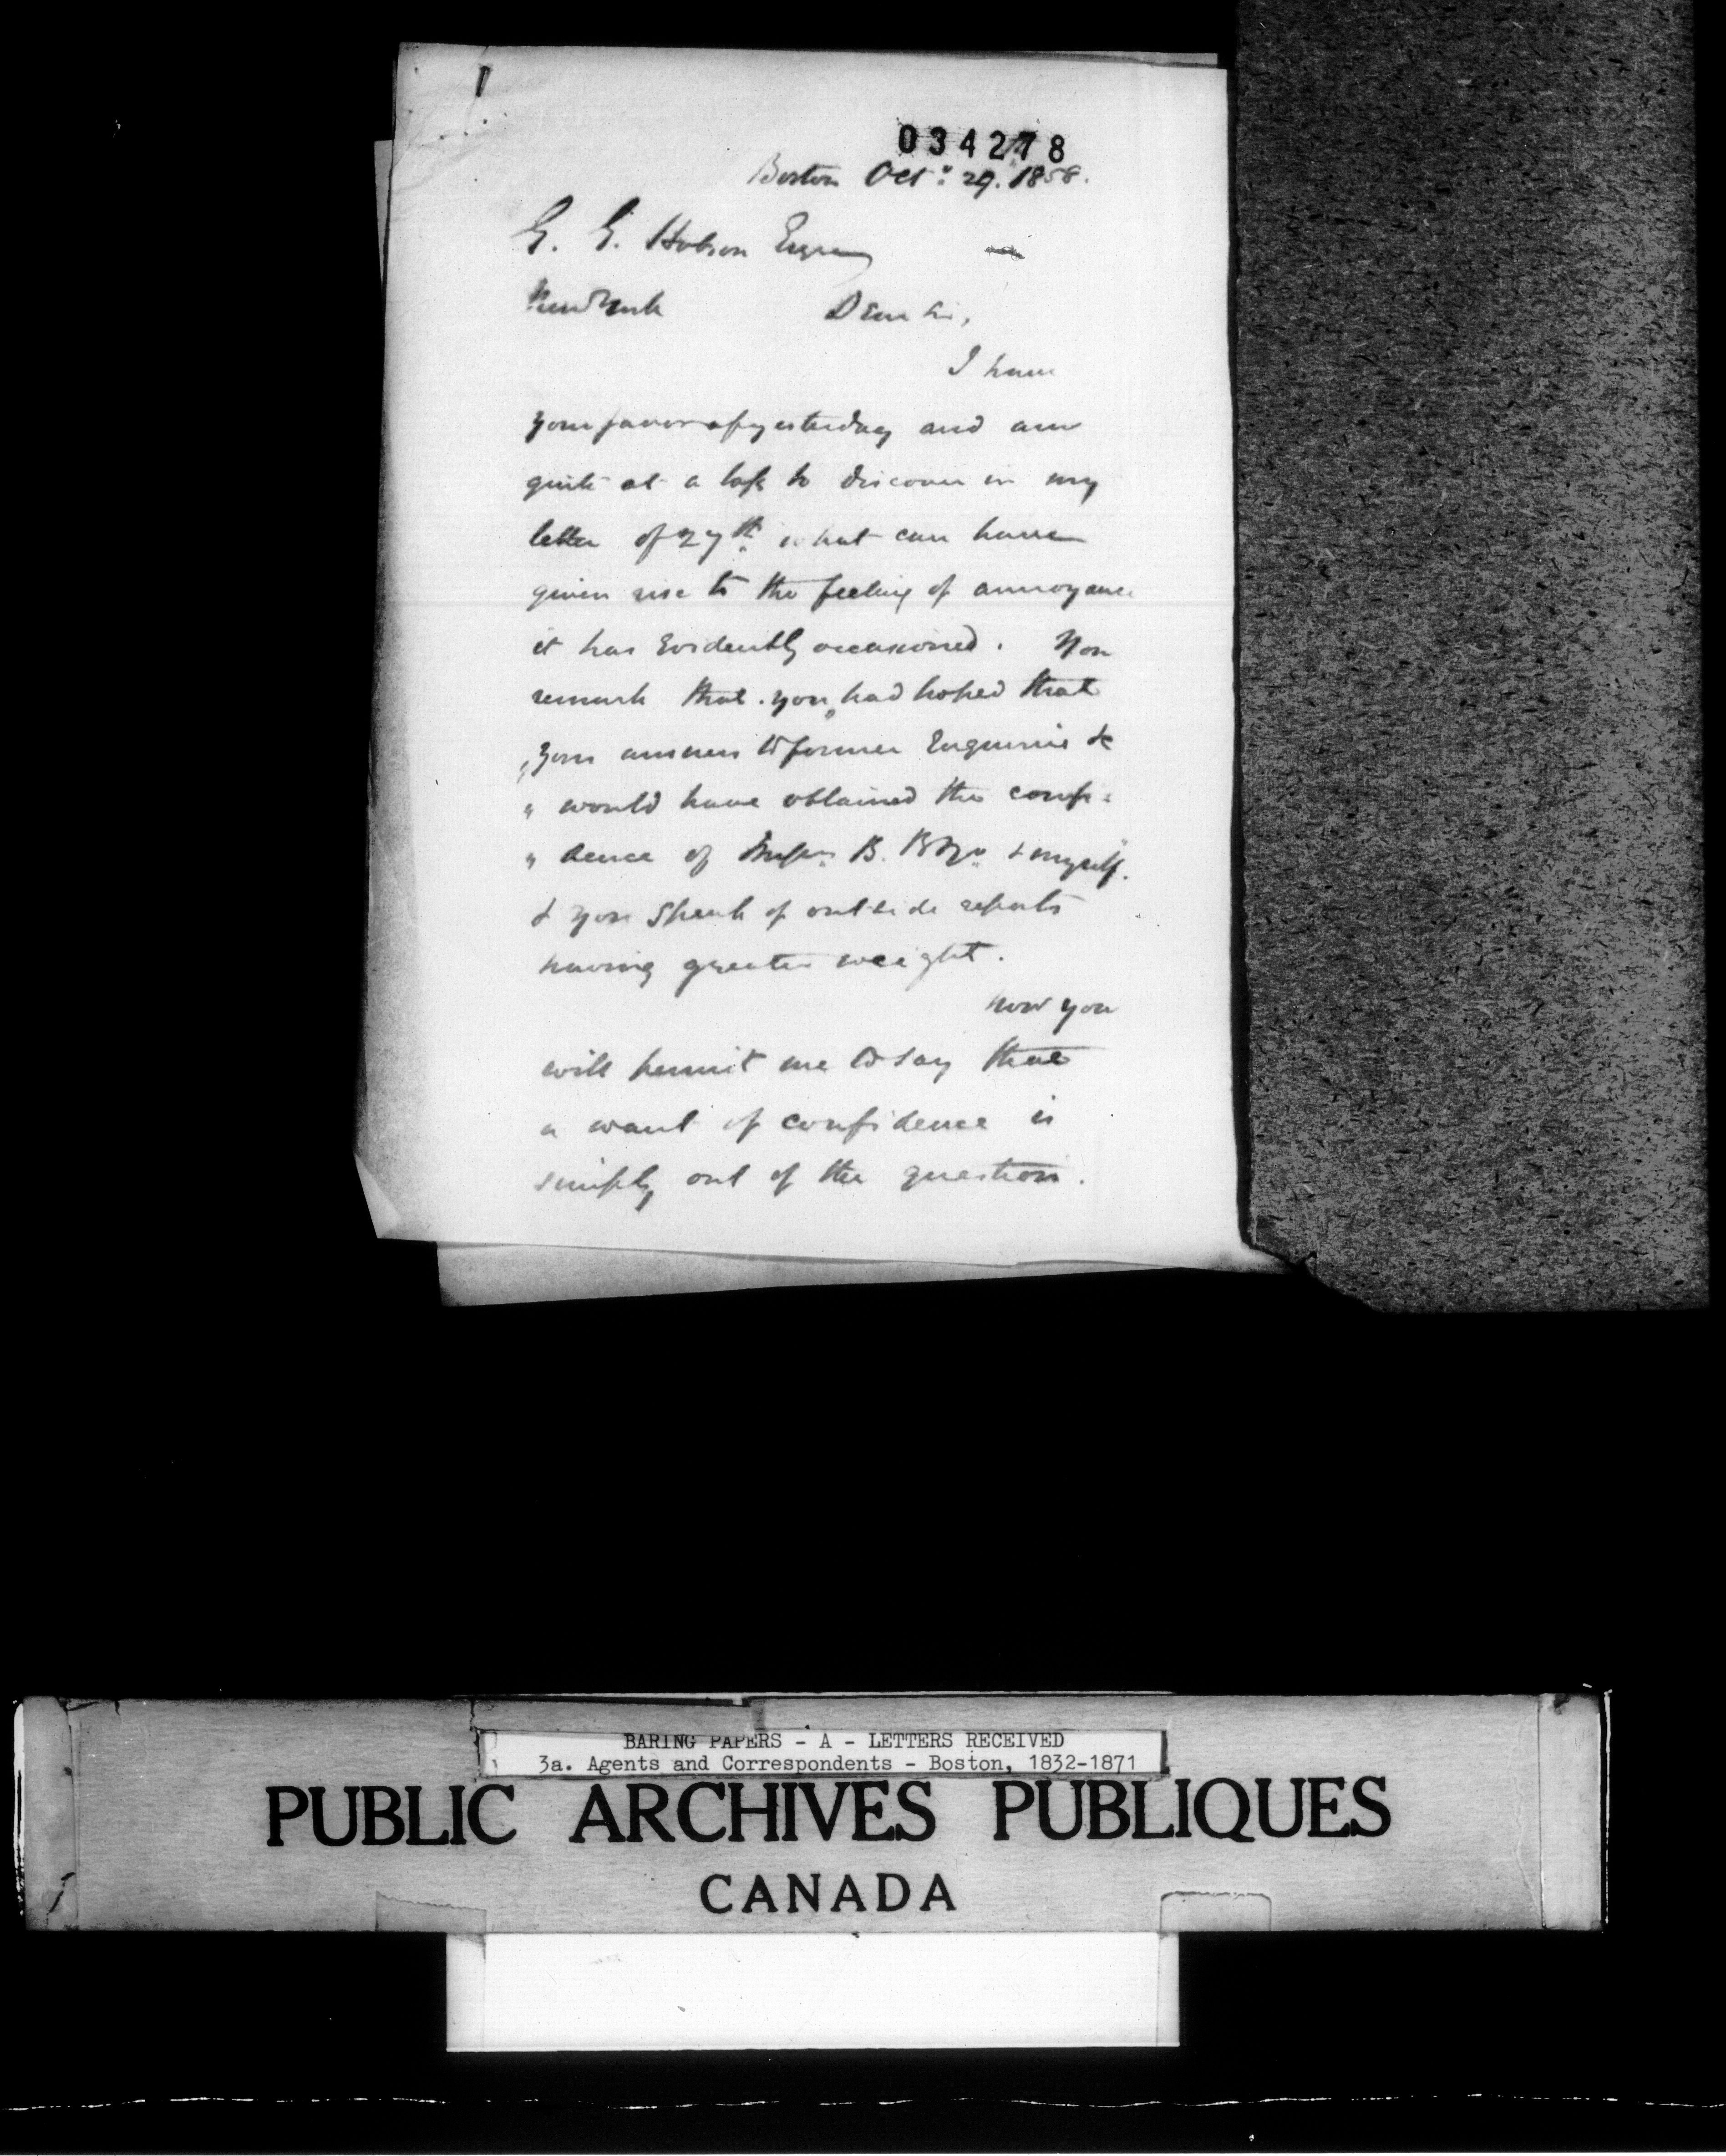 034278
Boston Octr. 29. 1858.
G. G. Hobson Esqre
New York Dear Sir,
I have
your favor of yesterday and am
quite at a loss to discover in my
letter of 27th. what can have
given rise to the feeling of annoyance
it has Evidently occasioned. You
remark that you "had hoped that
"your answers to former Enquiries &c
"would have obtained the confi:
"dence of Messrs. B. B & Co. & myself."
& you Speak of outside reports
having greater weight.
Now you
will permit me to say that
a want of confidence is
simply out of the question.
BARING PAPERS - A - LETTERS RECEIVED
3a. Agents and Correspondents - Boston, 1832-1871
PUBLIC ARCHIVES PUBLIQUES
CANADA